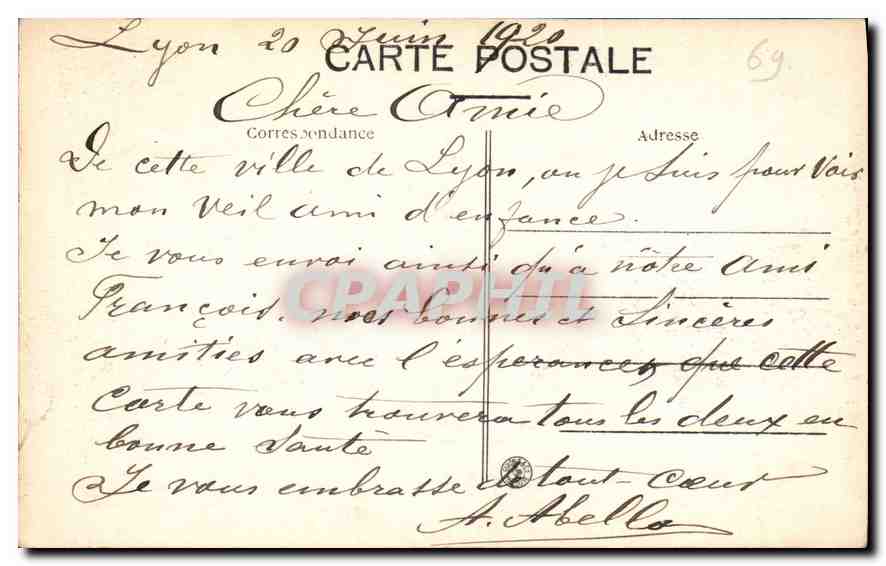 Lyon 20 Juin 1920
CARTE POSTALE
69.
Chère Amie
Correspondance
Adresse
De cette ville de Lyon, ou je suis pour voir
mon veil ami d'enfance.
Je vous envoi ainsi qu'à nôtre ami
CPAPHIL
François. mes bonnes et sincères
amities avec l'esperance, que cette
carte vous trouvera tous les deux en
bonne santé
Je vous embrasse de tout-coeur
A. Abella